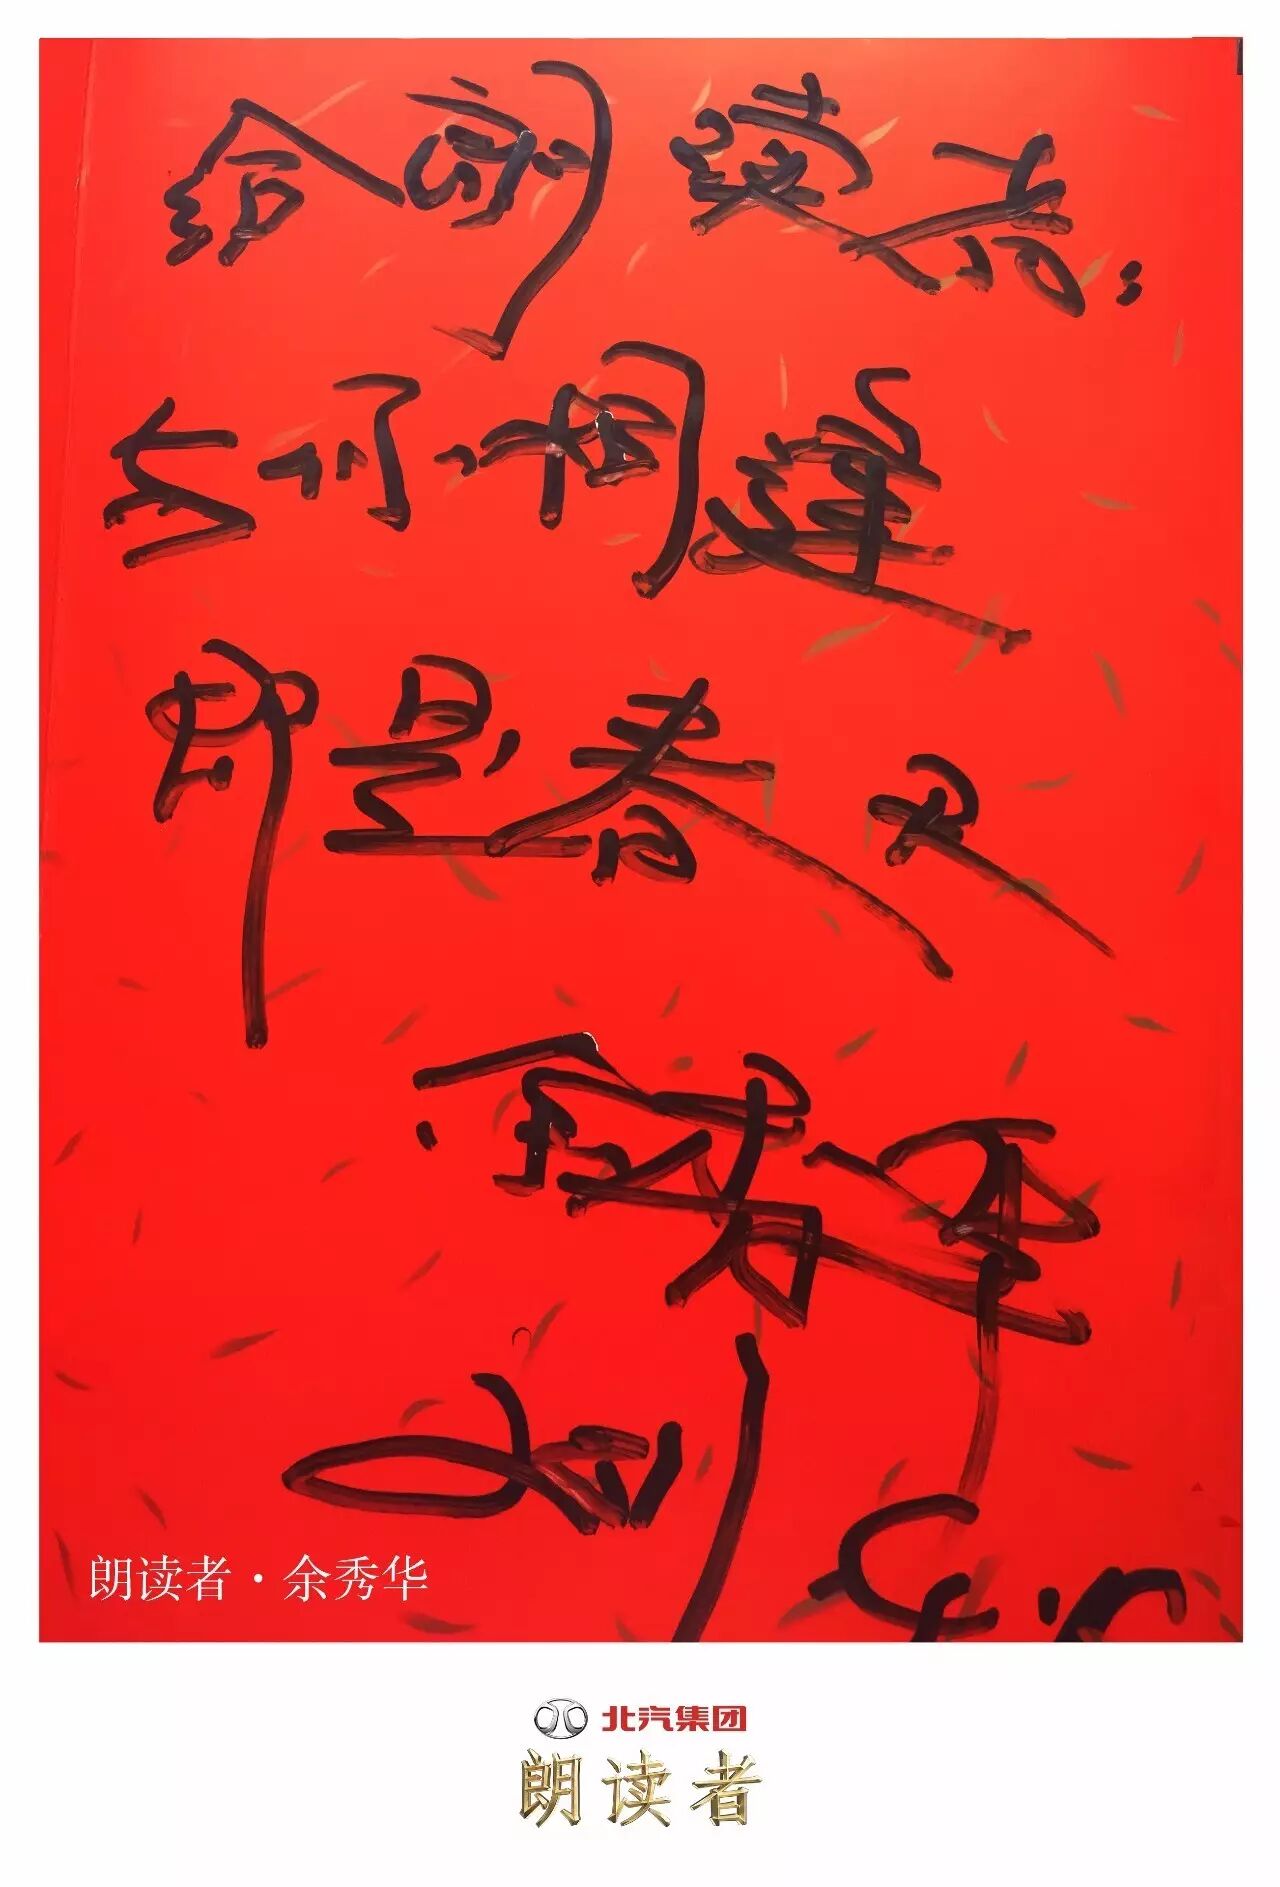 给朗读者：
与你相逢
即是春天
余秀华
朗读者·余秀华
北汽集团
朗读者